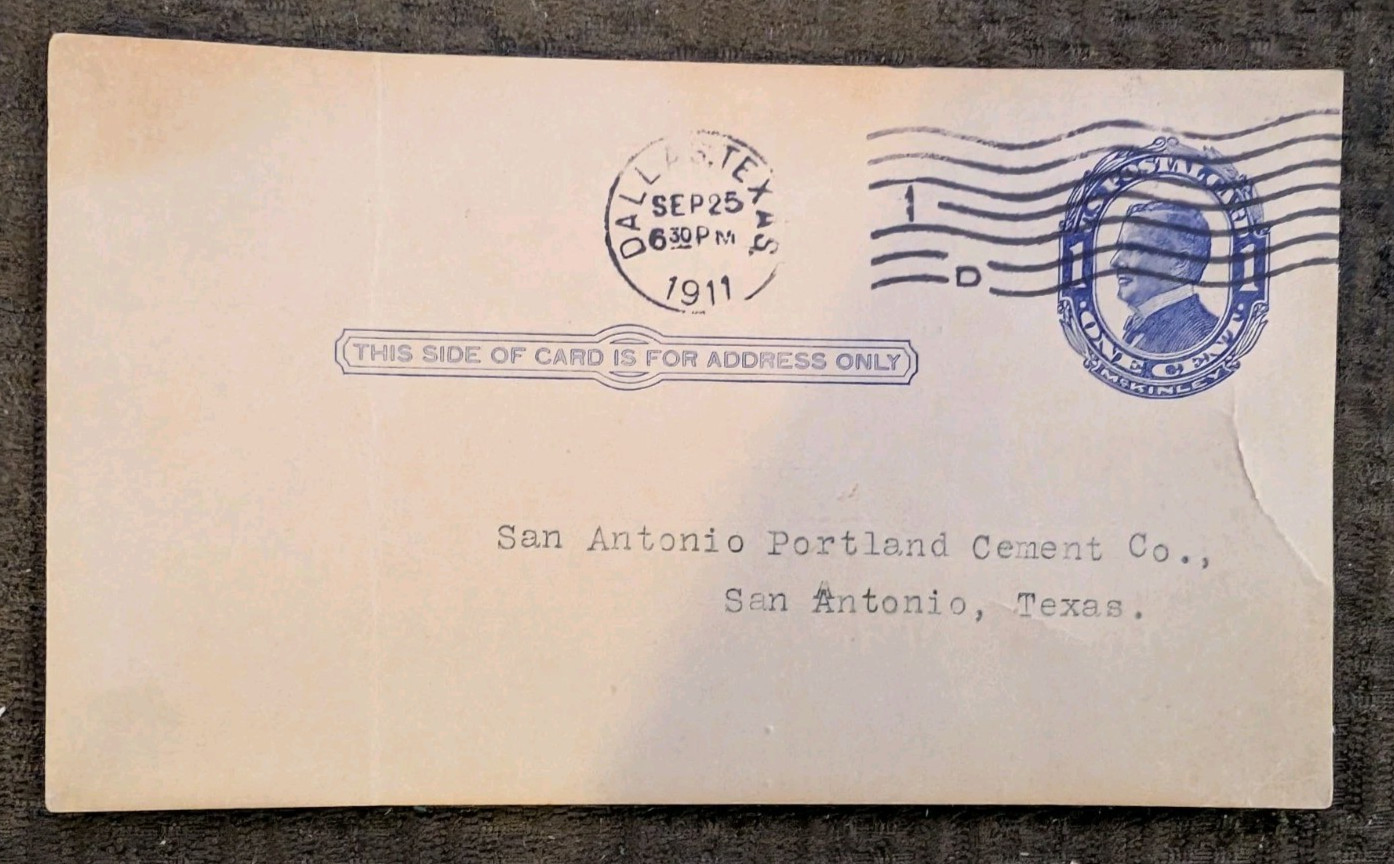 DALLAS, TEXAS
SEP 25
6 30 PM
1911
1
D
U.S. POSTAL CARD
1 1
ONE CENT
McKINLEY
THIS SIDE OF CARD IS FOR ADDRESS ONLY
San Antonio Portland Cement Co.,
San Antonio, Texas.